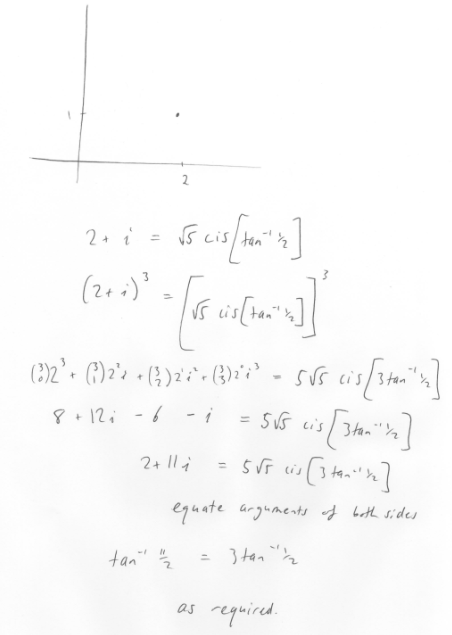 1
2
2 + i = √5 cis[tan⁻¹ ½]
(2 + i)³ = [√5 cis[tan⁻¹ ½]]³
(³₀)2³ + (³₁)2²i + (³₂)2¹i² + (³₃)2⁰i³ = 5√5 cis[3tan⁻¹ ½]
8 + 12i - 6 - i = 5√5 cis[3tan⁻¹ ½]
2 + 11i = 5√5 cis[3tan⁻¹ ½]
equate arguments of both sides
tan⁻¹ 11/2 = 3tan⁻¹ ½
as required.